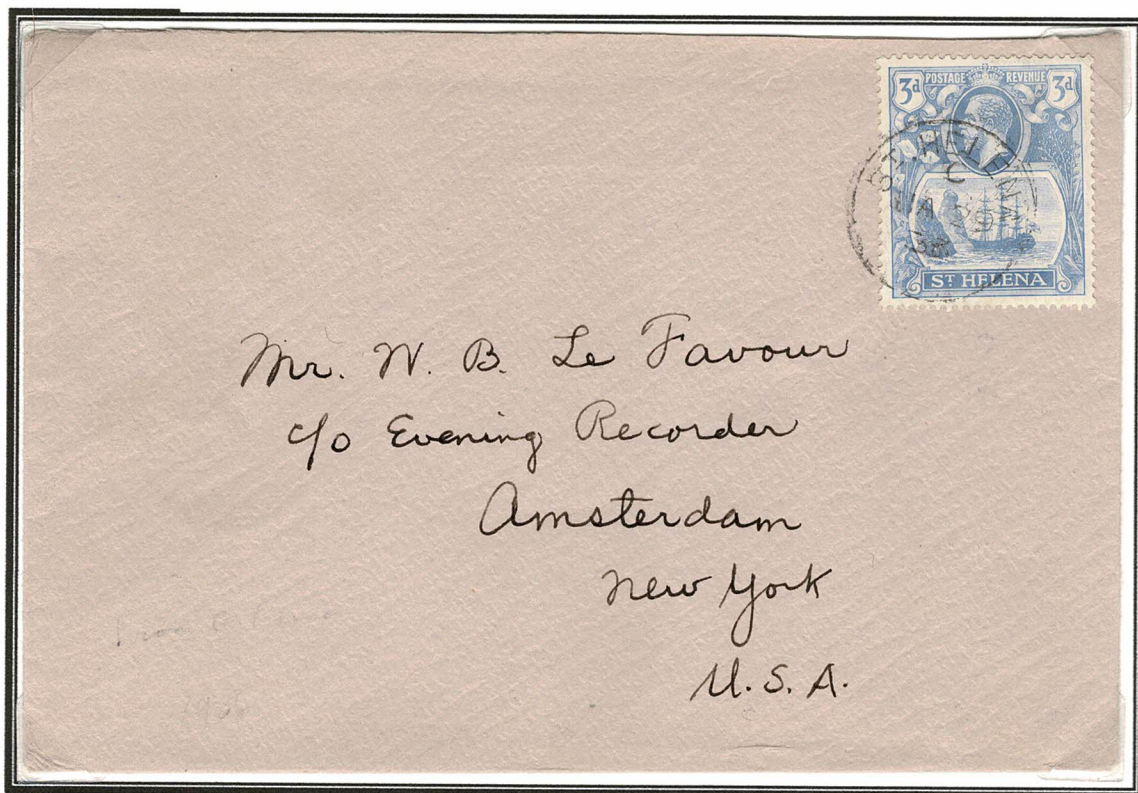 3d POSTAGE REVENUE 3d
ST. HELENA
C
ST HELENA
Mr. W. B. Le Favour
c/o Evening Recorder
Amsterdam
New York
U.S.A.